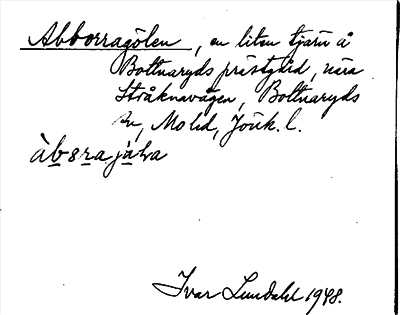 Abborragölen, en liten tjärn å
Bottnaryds prästgård, nära
Stråknavägen, Bottnaryds
sn, Mo hd, Jönk. l.
àbsrajǝ̀lva
Ivar Lundahl 1948.